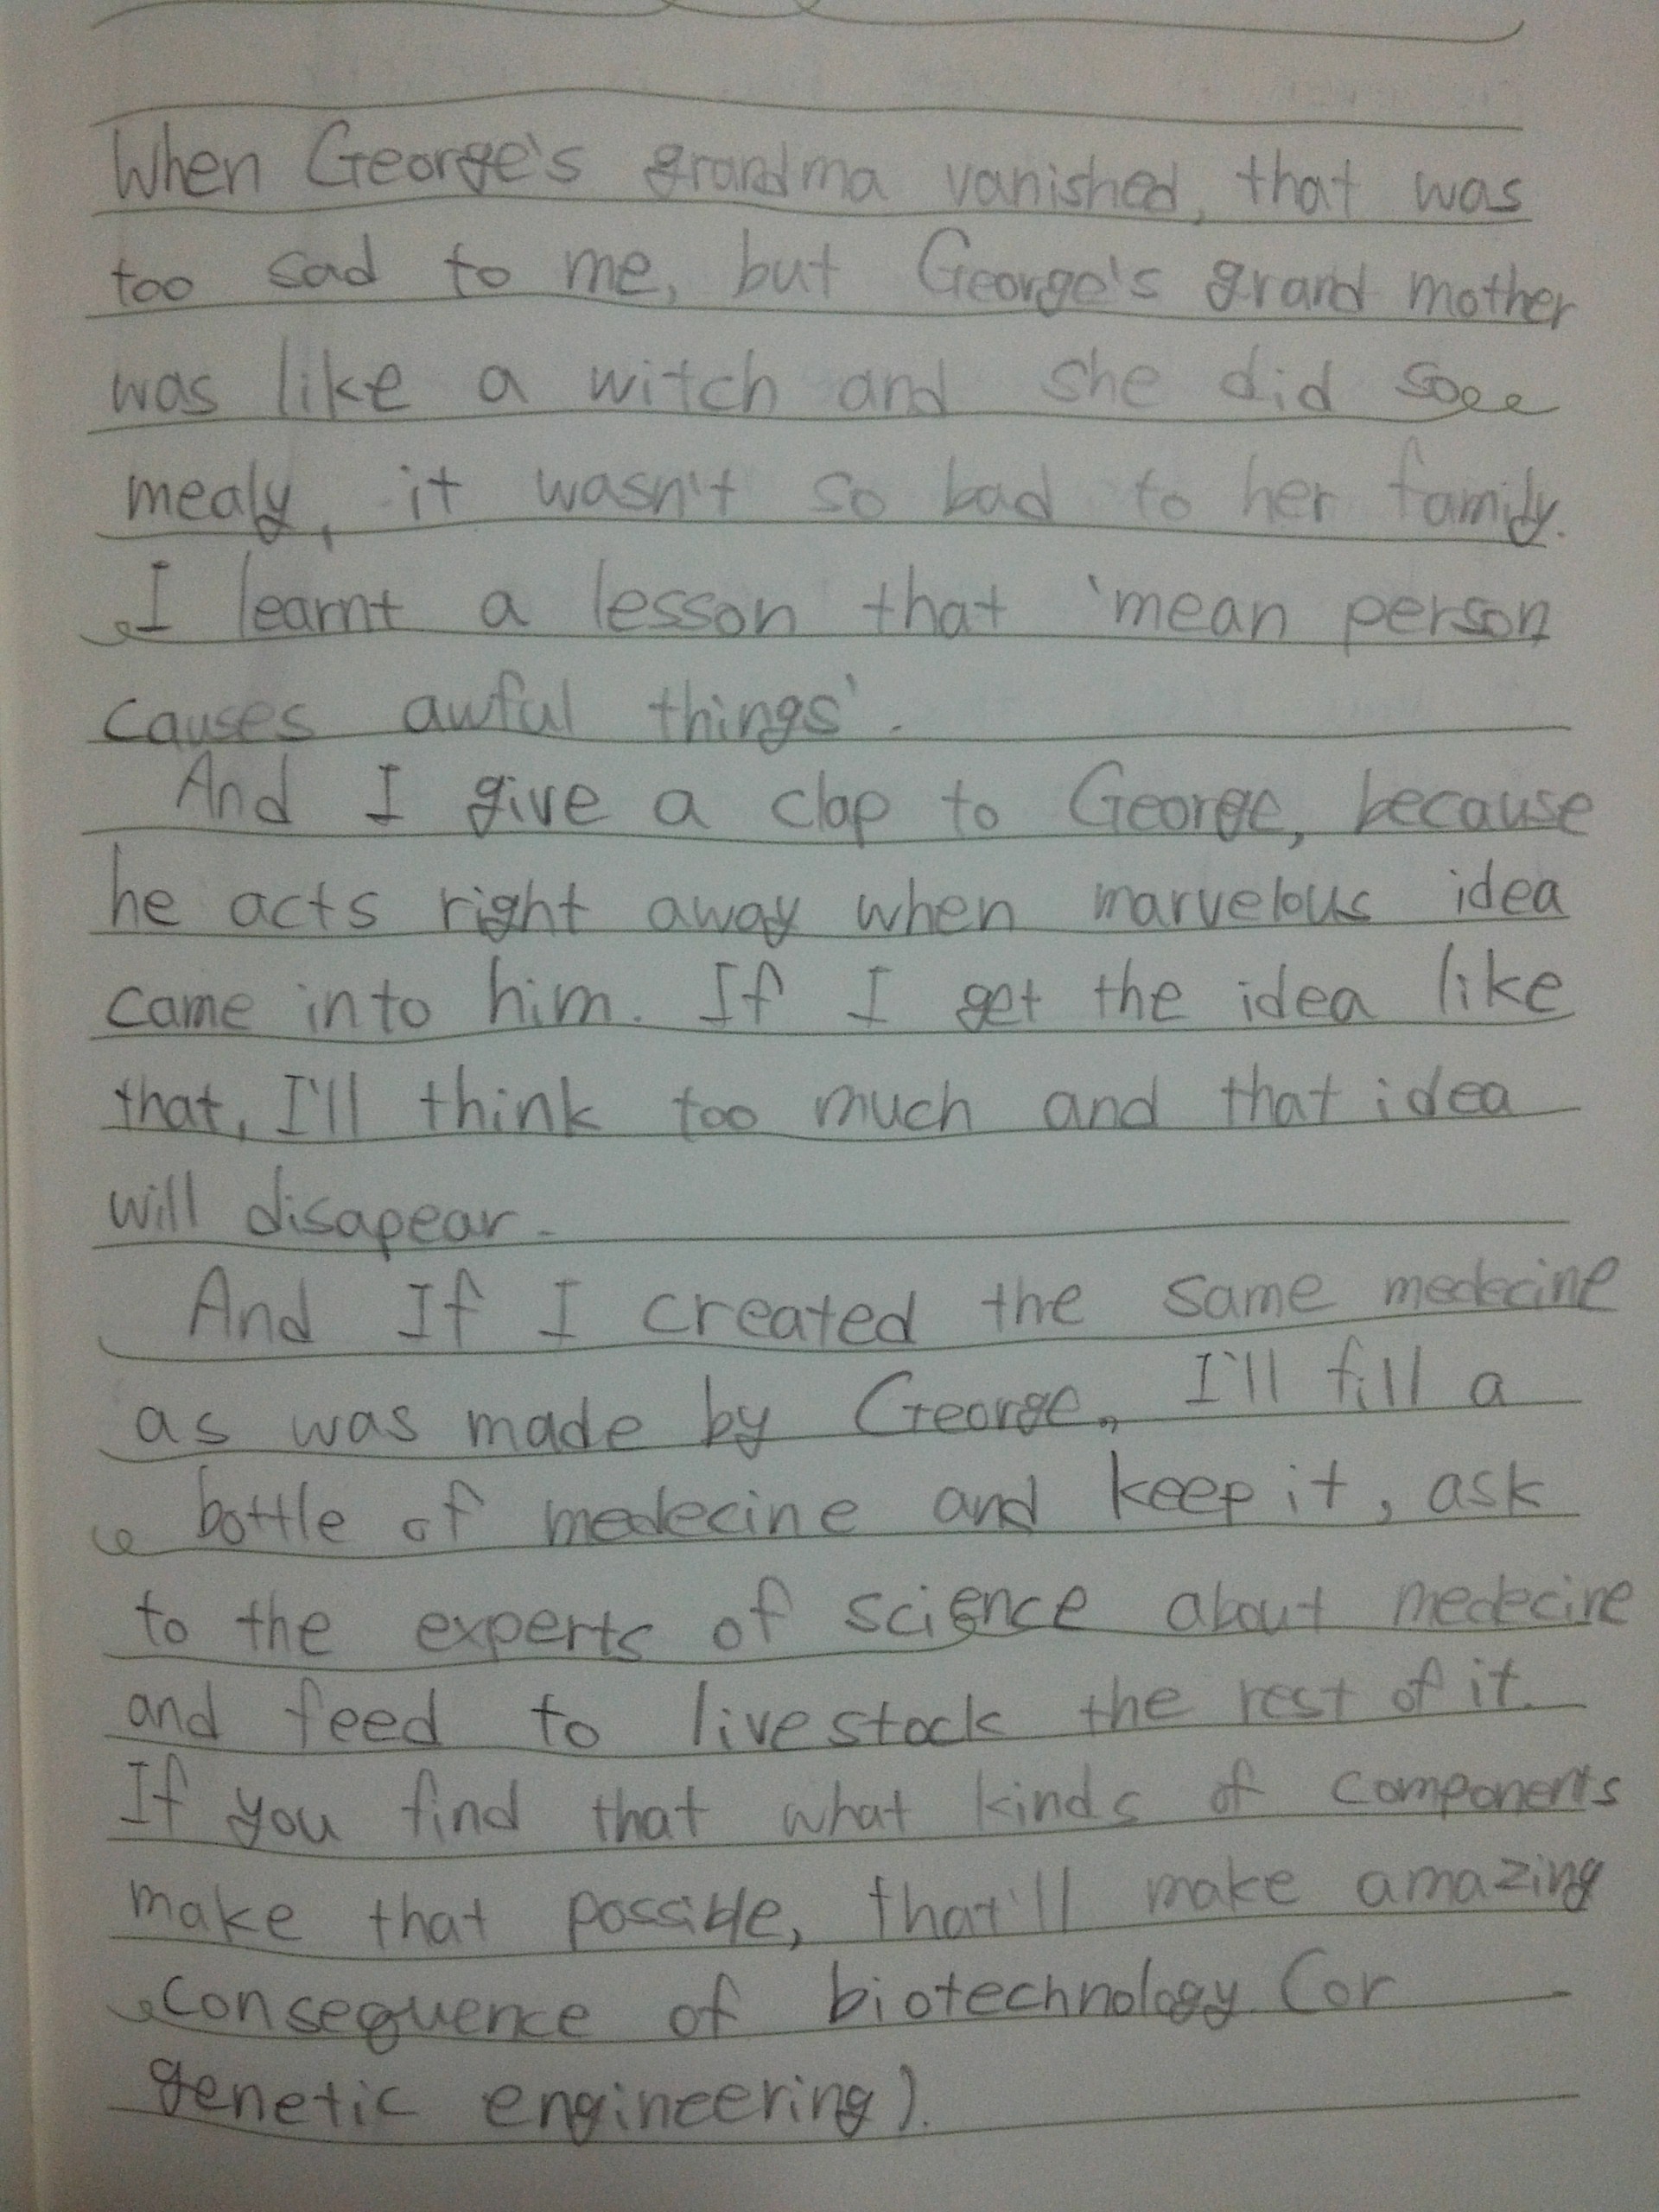 When George's grandma vanished, that was
too sad to me, but George's grand mother
was like a witch and she did so
mealy, it wasn't so bad to her family.
I learnt a lesson that 'mean person
causes awful things'.
And I give a clap to George, because
he acts right away when marvelous idea
came into him. If I get the idea like
that, I'll think too much and that idea
will disapear.
And If I created the same medecine
as was made by George, I'll fill a
bottle of medecine and keep it, ask
to the experts of science about medecine
and feed to livestock the rest of it.
If you find that what kinds of components
make that possible, that'll make amazing
consequence of biotechnology (or
genetic engineering).